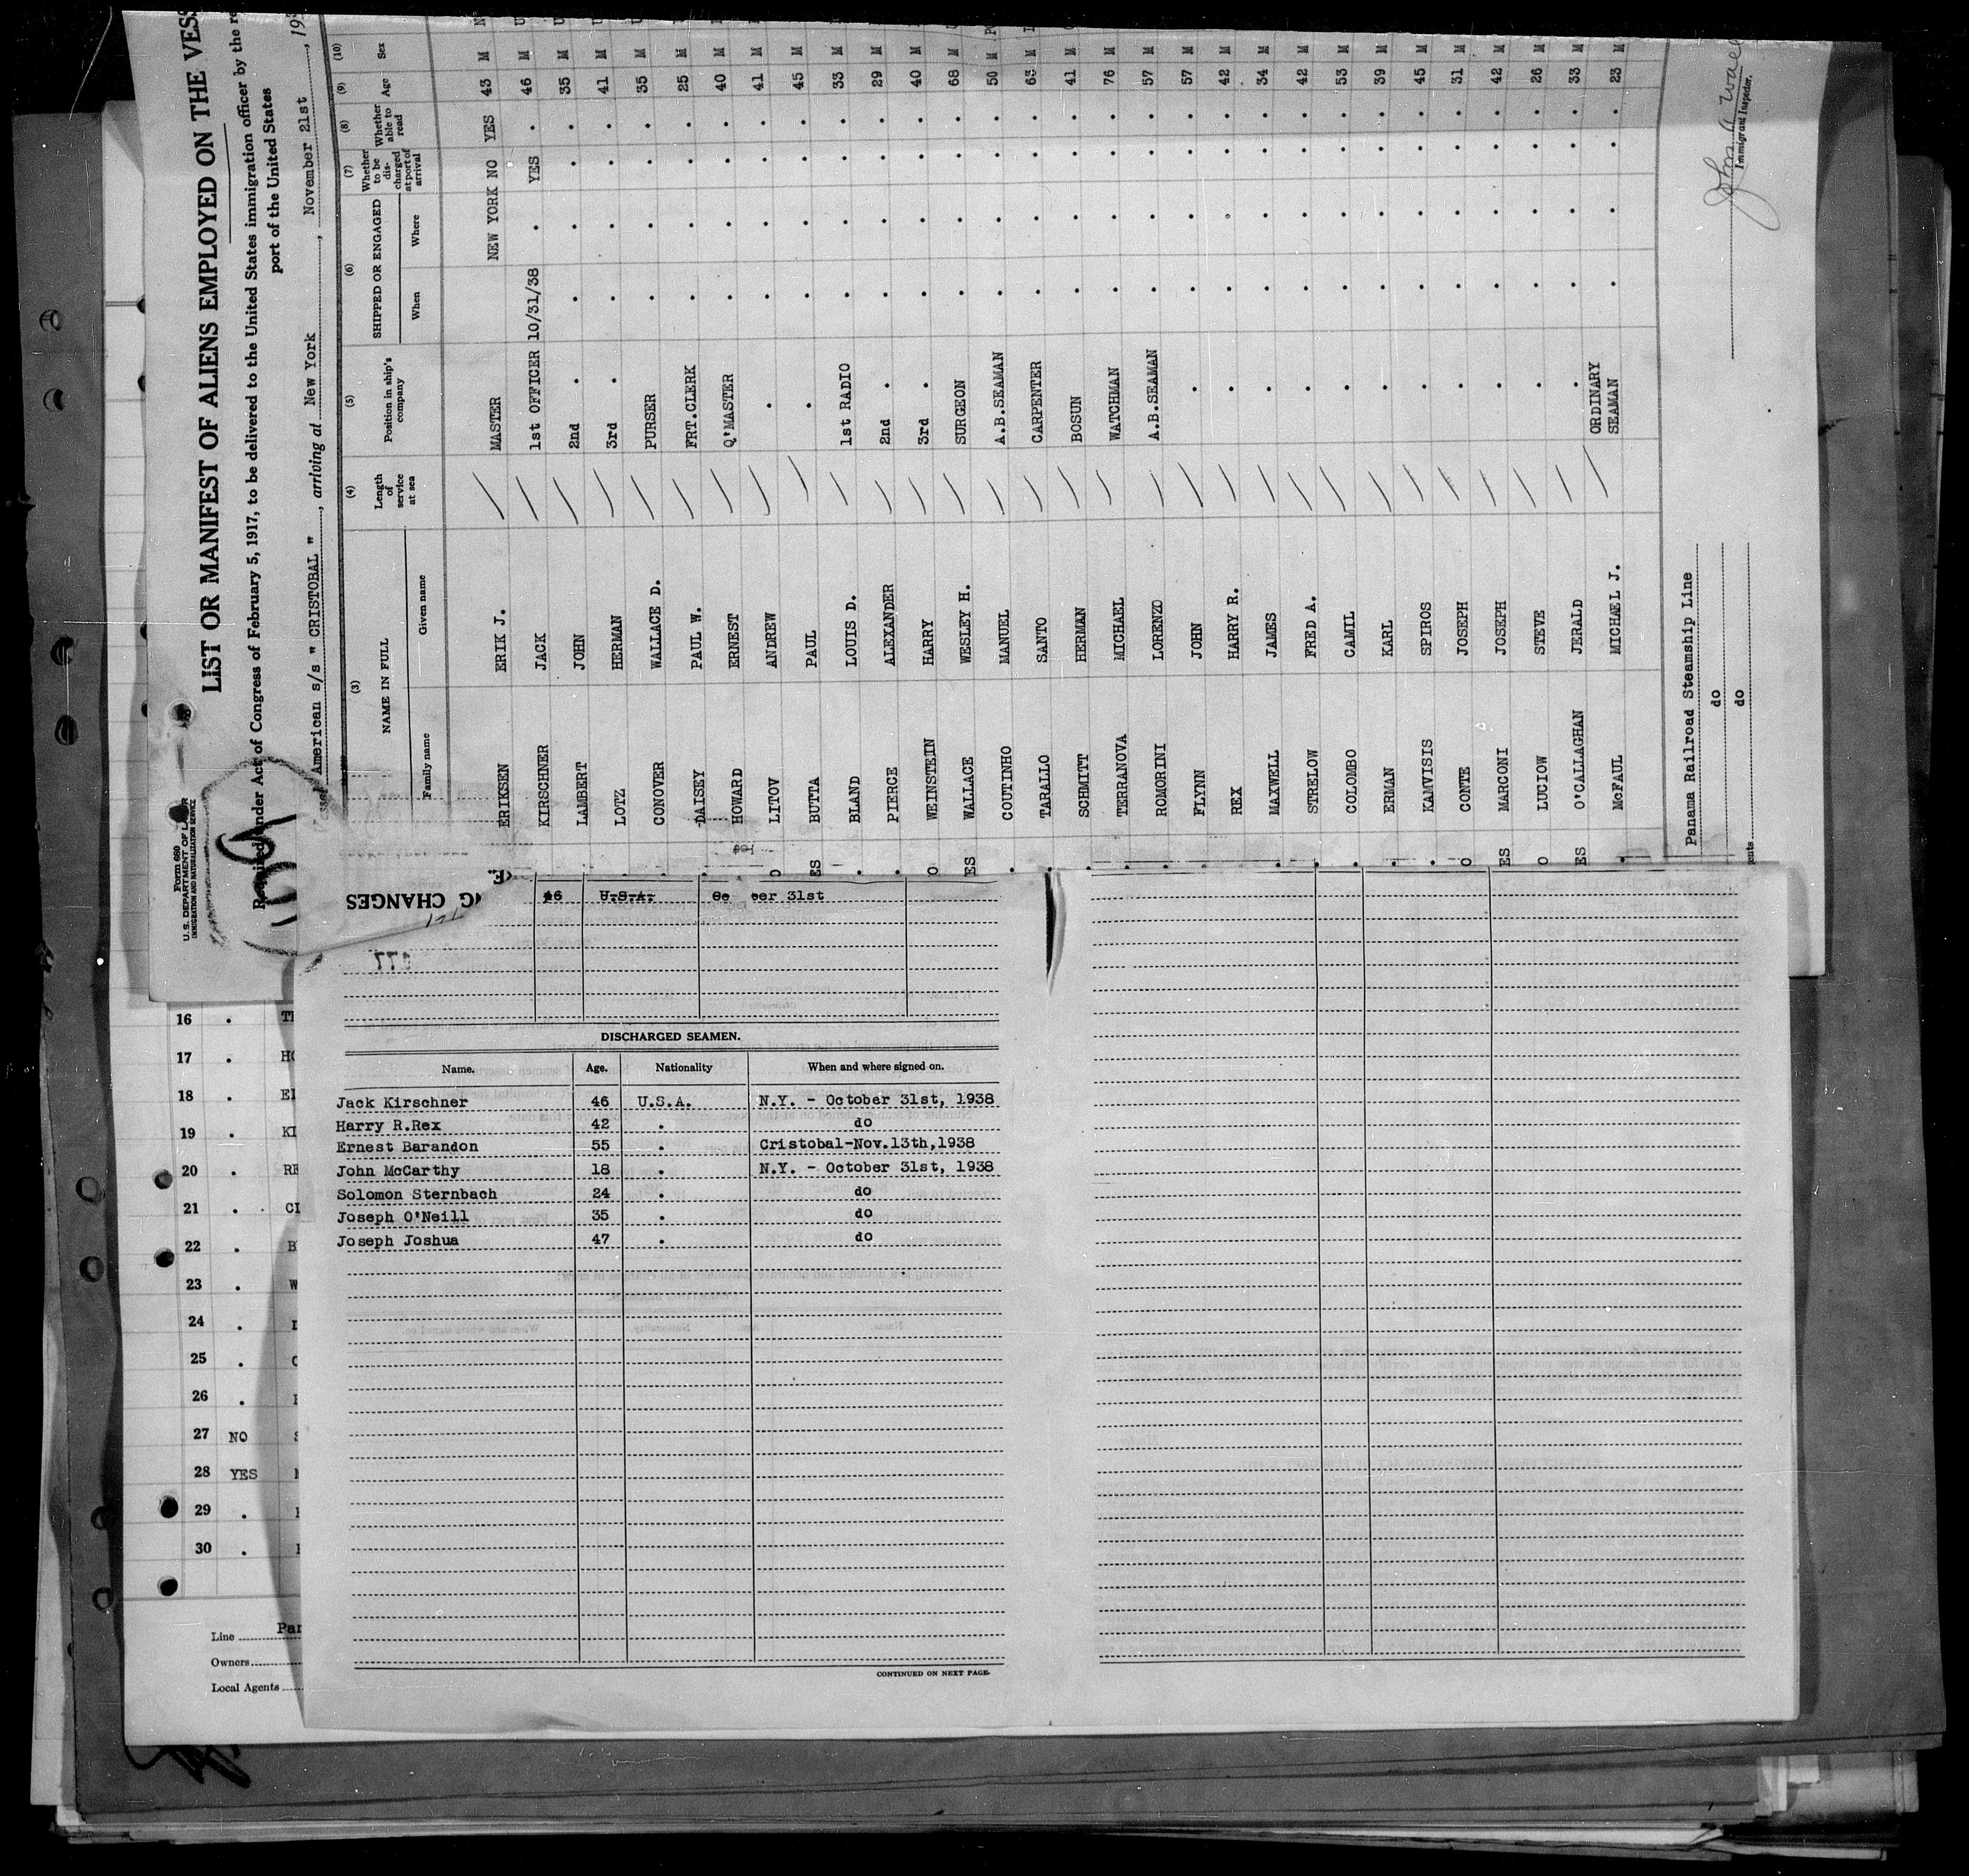 Form 680
U. S. DEPARTMENT OF LABOR
IMMIGRATION AND NATURALIZATION SERVICE
109
LIST OR MANIFEST OF ALIENS EMPLOYED ON THE VESS
Required under Act of Congress of February 5, 1917, to be delivered to the United States immigration officer by the
port of the United States
American s/s " CRISTOBAL ", arriving at New York, November 21st, 193
(3) (4) (5) (6) (7) (8) (9) (10)
NAME IN FULL
Family name Given name
Length of service at sea
Position in ship's company
SHIPPED OR ENGAGED
When Where
Whether to be discharged at port of arrival
Whether able to read
Age Sex
ERIKSEN ERIK J. MASTER NEW YORK NO YES 43 M
KIRSCHNER JACK 1st OFFICER 10/31/38 . YES . 46 M
LAMBERT JOHN 2nd . . . . . 35 M
LOTZ HERMAN 3rd . . . . . 41 M
CONOVER WALLACE D. PURSER . . . . 35 M
DAISEY PAUL W. FRT.CLERK . . . . 25 M
HOWARD ERNEST Q'MASTER . . . . 40 M
LITOV ANDREW . . . . . 41 M
BUTTA PAUL . . . . . 45 M
BLAND LOUIS D. 1st RADIO . . . . 33 M
PIERCE ALEXANDER 2nd . . . . . 29 M
WEINSTEIN HARRY 3rd . . . . . 40 M
WALLACE WESLEY H. SURGEON . . . . 68 M
COUTINHO MANUEL A.B.SEAMAN . . . . 50 M
TARALLO SANTO CARPENTER . . . . 63 M
SCHMITT HERMAN BOSUN . . . . 41 M
TERRANOVA MICHAEL WATCHMAN . . . . 76 M
ROMORINI LORENZO A.B.SEAMAN . . . . 57 M
FLYNN JOHN . . . . . 57 M
REX HARRY R. . . . . . 42 M
MAXWELL JAMES . . . . . 34 M
STRELOW FRED A. . . . . . 42 M
COLOMBO CAMIL . . . . . 53 M
ERMAN KARL . . . . . 39 M
KAMVISIS SPIROS . . . . . 45 M
CONTE JOSEPH . . . . . 31 M
MARCONI JOSEPH . . . . . 42 M
LUCIOW STEVE . . . . . 26 M
O'CALLAGHAN JERALD . . . . . 33 M
McFAUL MICHAEL J. ORDINARY SEAMAN . . . . 23 M
Panama Railroad Steamship Line
do
do
Immigrant Inspector.
G CHANGES
46 U.S.A. er 31st
077
DISCHARGED SEAMEN.
Name. Age. Nationality When and where signed on.
Jack Kirschner 46 U.S.A. N.Y. - October 31st, 1938
Harry R.Rex 42 . do
Ernest Barandon 55 . Cristobal-Nov.13th,1938
John McCarthy 18 . N.Y. - October 31st, 1938
Solomon Sternbach 24 . do
Joseph O'Neill 35 . do
Joseph Joshua 47 . do
CONTINUED ON NEXT PAGE.
16 .
17 . HO
18 . EI
19 . KI
20 .
21 . CI
22 . B
23 . W
24 .
25 .
26 .
27 NO
28 YES
29 .
30 .
Line Par
Owners
Local Agents